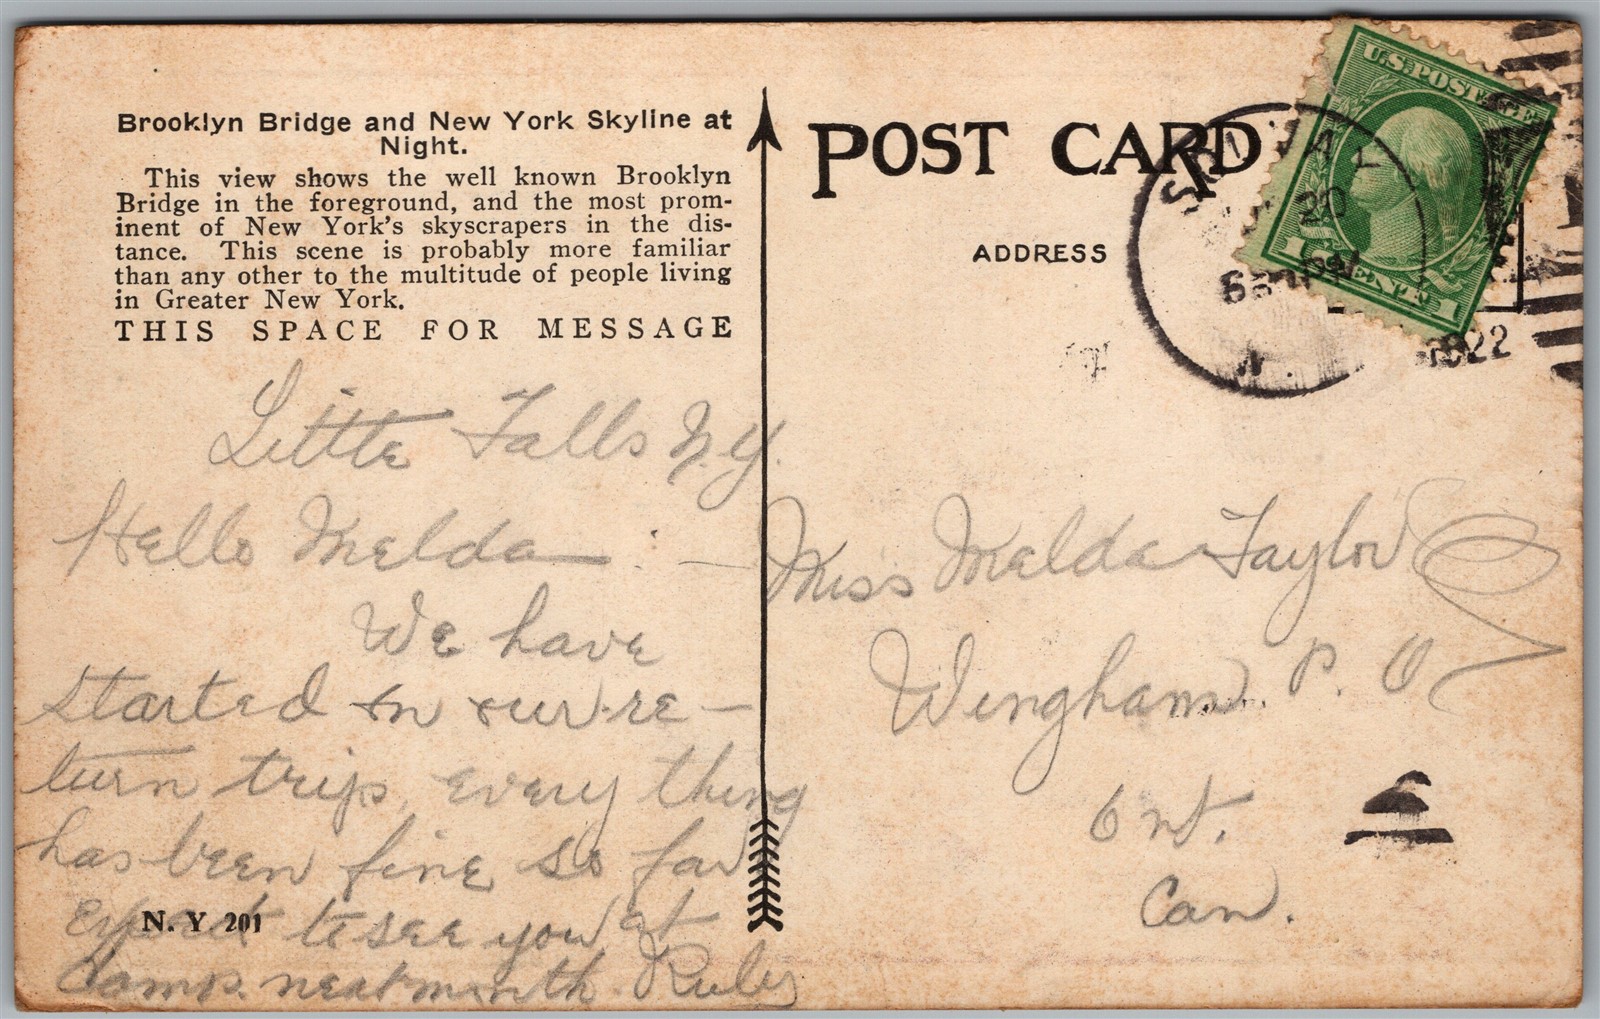 Brooklyn Bridge and New York Skyline at
Night.
This view shows the well known Brooklyn
Bridge in the foreground, and the most prom-
inent of New York's skyscrapers in the dis-
tance. This scene is probably more familiar
than any other to the multitude of people living
in Greater New York.
THIS SPACE FOR MESSAGE
Little Falls N.Y.
Hello Melda :—
We have
started on our re-
turn trip, every thing
has been fine so far
Expect to see you at
Camp. next month. Ruby
N. Y 201
POST CARD
ADDRESS
U.S. POSTAGE
1 CENT 1
20
1922
Miss Melda Taylor
Wingham. P. O
Ont.
Can.